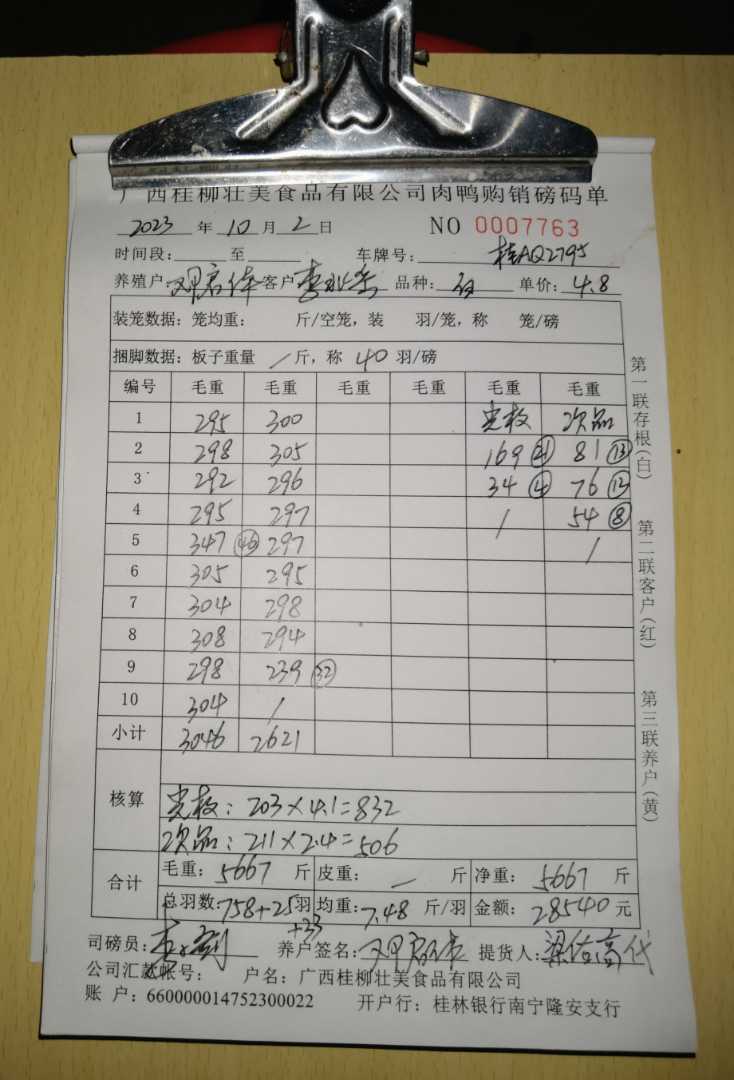 广西桂柳壮美食品有限公司肉鸭购销磅码单
2023 年 10 月 2 日 NO 0007763
时间段: 至 车牌号: 桂AQ2795
养殖户: 客户: 品种: 白 单价: 4.8
装笼数据: 笼均重: 斤/空笼, 装 羽/笼, 称 笼/磅
捆脚数据: 板子重量 / 斤, 称 40 羽/磅
编号 毛重 毛重 毛重 毛重 毛重 毛重
1 295 300 光板 次品
2 298 305 169 21 81 13
3 292 296 34 4 76 12
4 295 297 / 54 8
5 347 46 297 /
6 305 295
7 304 298
8 308 294
9 298 239 32
10 304 /
小计 3046 2621
核算
光板: 203×4.1=832
次品: 211×2.4=506
合计 毛重: 5667 斤 皮重: — 斤 净重: 5667 斤
总羽数: 758+25羽 +33 均重: 7.48 斤/羽 金额: 28540 元
司磅员: 养户签名: 提货人:
公司汇款帐号: 户名: 广西桂柳壮美食品有限公司
账 户: 660000014752300022 开户行: 桂林银行南宁隆安支行
第一联存根(白) 第二联客户(红) 第三联养户(黄)